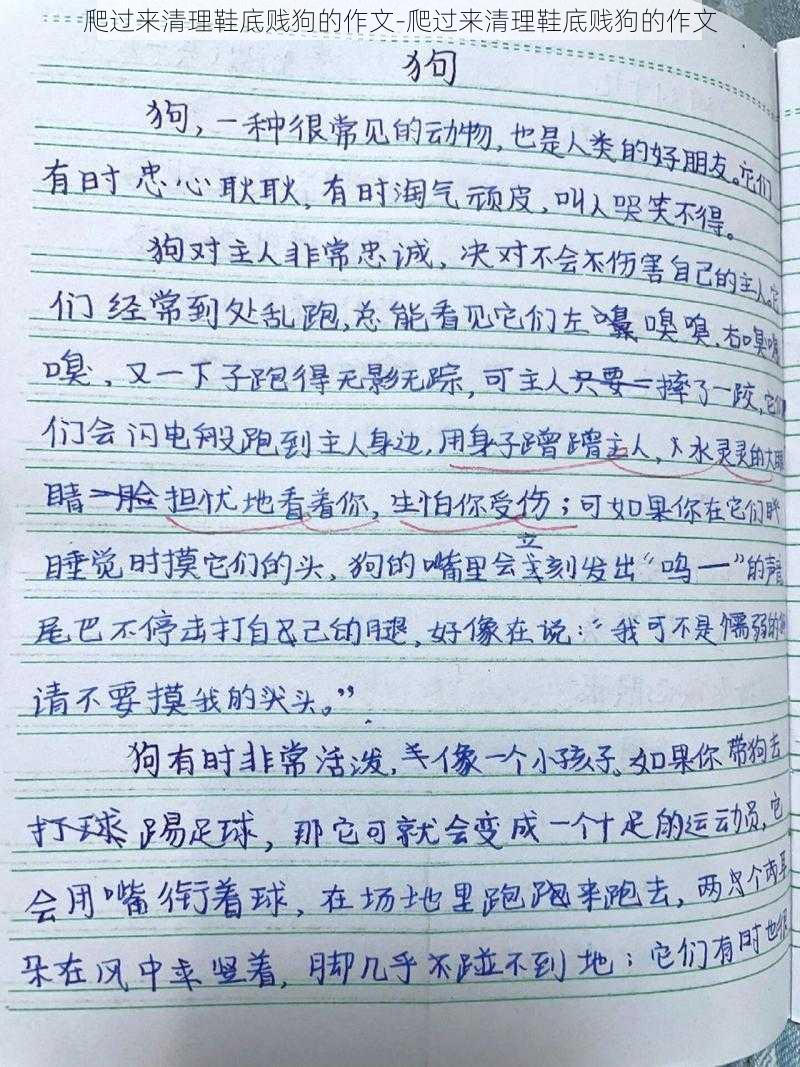 爬过来清理鞋底贱狗的作文-爬过来清理鞋底贱狗的作文
狗
狗，一种很常见的动物，也是人类的好朋友。它们
有时忠心耿耿，有时淘气顽皮，叫人哭笑不得。
狗对主人非常忠诚，决对不会不伤害自己的主人。它
们经常到处乱跑，总能看见它们左嗅嗅，右嗅嗅
嗅，又一下子跑得无影无踪，可主人只要一摔了一跤，它们
们会闪电般跑到主人身边，用身子蹭蹭主人，水灵灵的大眼
睛一脸担忧地看着你，生怕你受伤；可如果你在它们
睡觉时摸它们的头，狗的嘴里会立刻发出“呜一”的声音
尾巴不停击打自己的腿，好像在说：“我可不是懦弱的
请不要摸我的头头。”
狗有时非常活泼，像一个小孩子。如果你带狗去
打球踢足球，那它可就会变成一个十足的运动员，它
会用嘴衔着球，在场地里跑跑来跑去，两只个
朵在风中竖着，脚几乎不碰不到地；它们有时也很